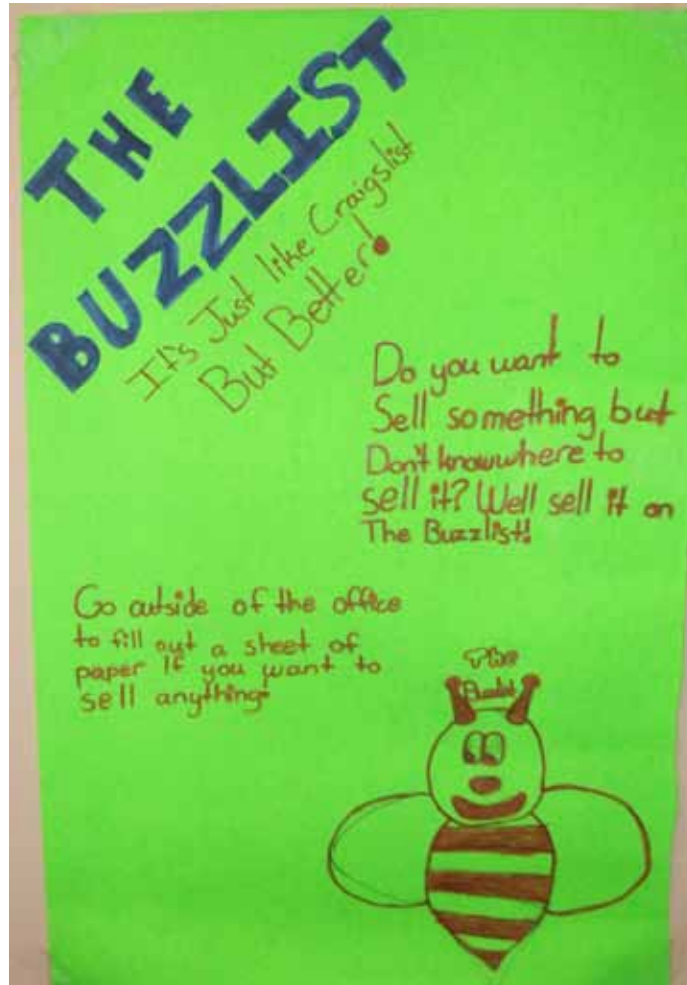 THE
BUZZLIST
It's Just like Craigslist
But Better!
Do you want to
Sell something but
Don't know where to
sell it? Well sell it on
The Buzzlist!
Go outside of the office
to fill out a sheet of
paper If you want to
sell anything!
The